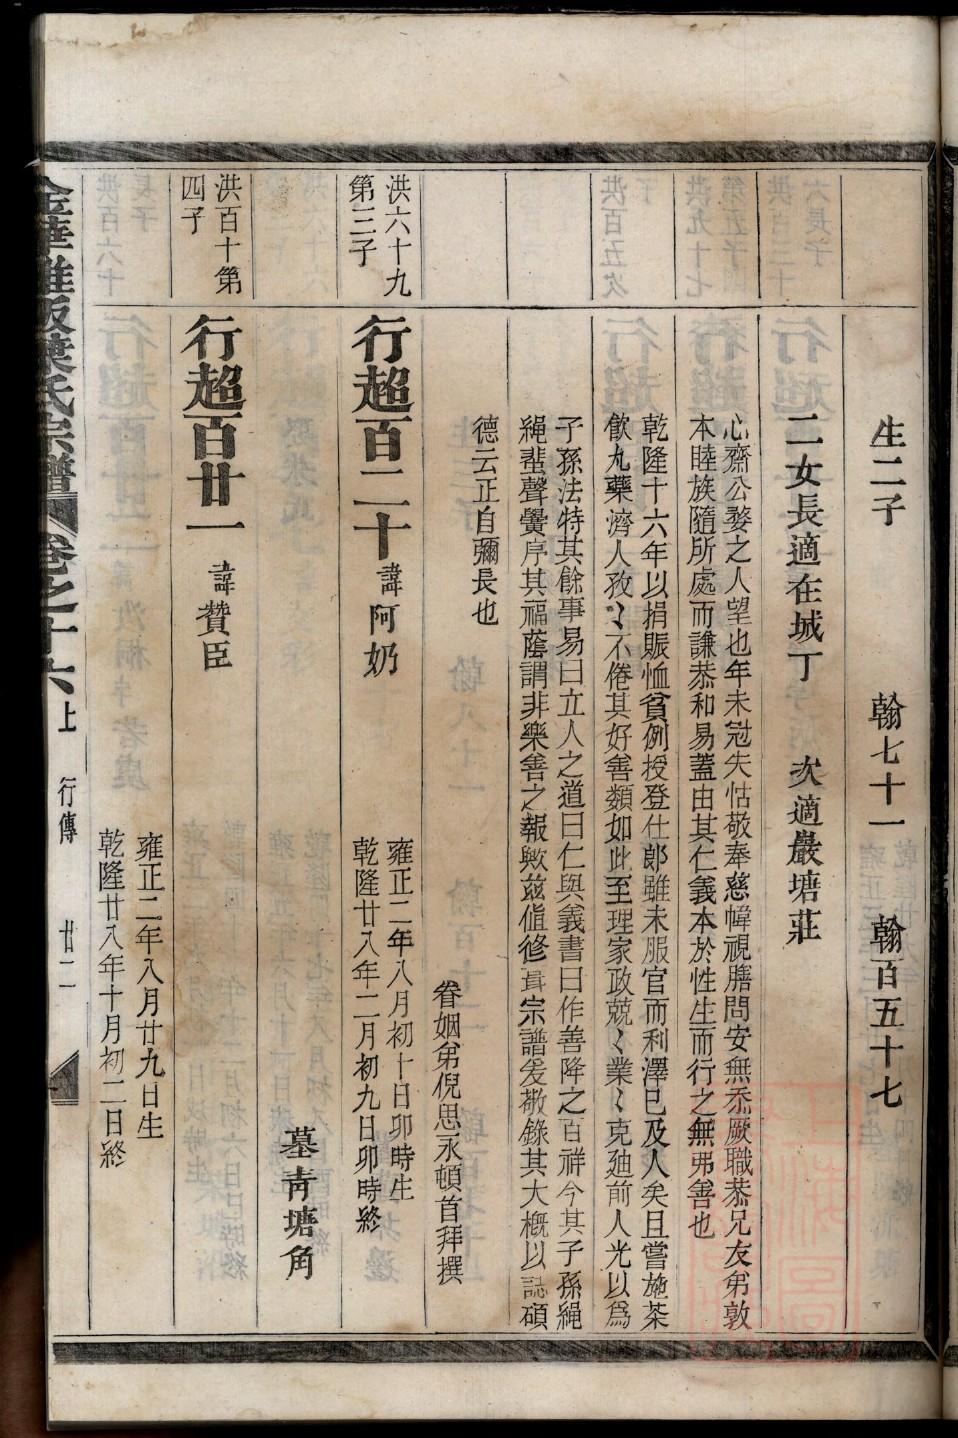 生二子　翰七十一　翰百五十七
二女長適在城丁　次適嚴塘莊
心齋公婺之人望也年未冠失怙敬奉慈幃視膳問安無忝厥職恭兄友弟敦
本睦族隨所處而謙恭和易蓋由其仁義本於性生而行之無弗善也
乾隆十六年以捐賑恤貧例授登仕郎雖未服官而利澤已及人矣且嘗施茶
飲九藥濟人孜〻不倦其好善類如此至理家政兢〻業〻克廸前人光以爲
子孫法特其餘事易曰立人之道曰仁與義書曰作善降之百祥今其子孫繩
繩蜚聲黌序其福蔭謂非樂善之報歟兹值修輯宗譜爰敬錄其大概以誌碩
德云正自彌長也
眷姻弟倪思永頓首拜撰
洪六十九
第三子
行超百二十　諱阿奶
雍正二年八月初十日卯時生
乾隆廿八年二月初九日卯時終
墓青塘角
洪百十第
四子
行超百廿一　諱贊臣
雍正二年八月廿九日生
乾隆廿八年十月初二日終
金華雅畈葉氏宗譜　卷之十六上　行傳　廿二